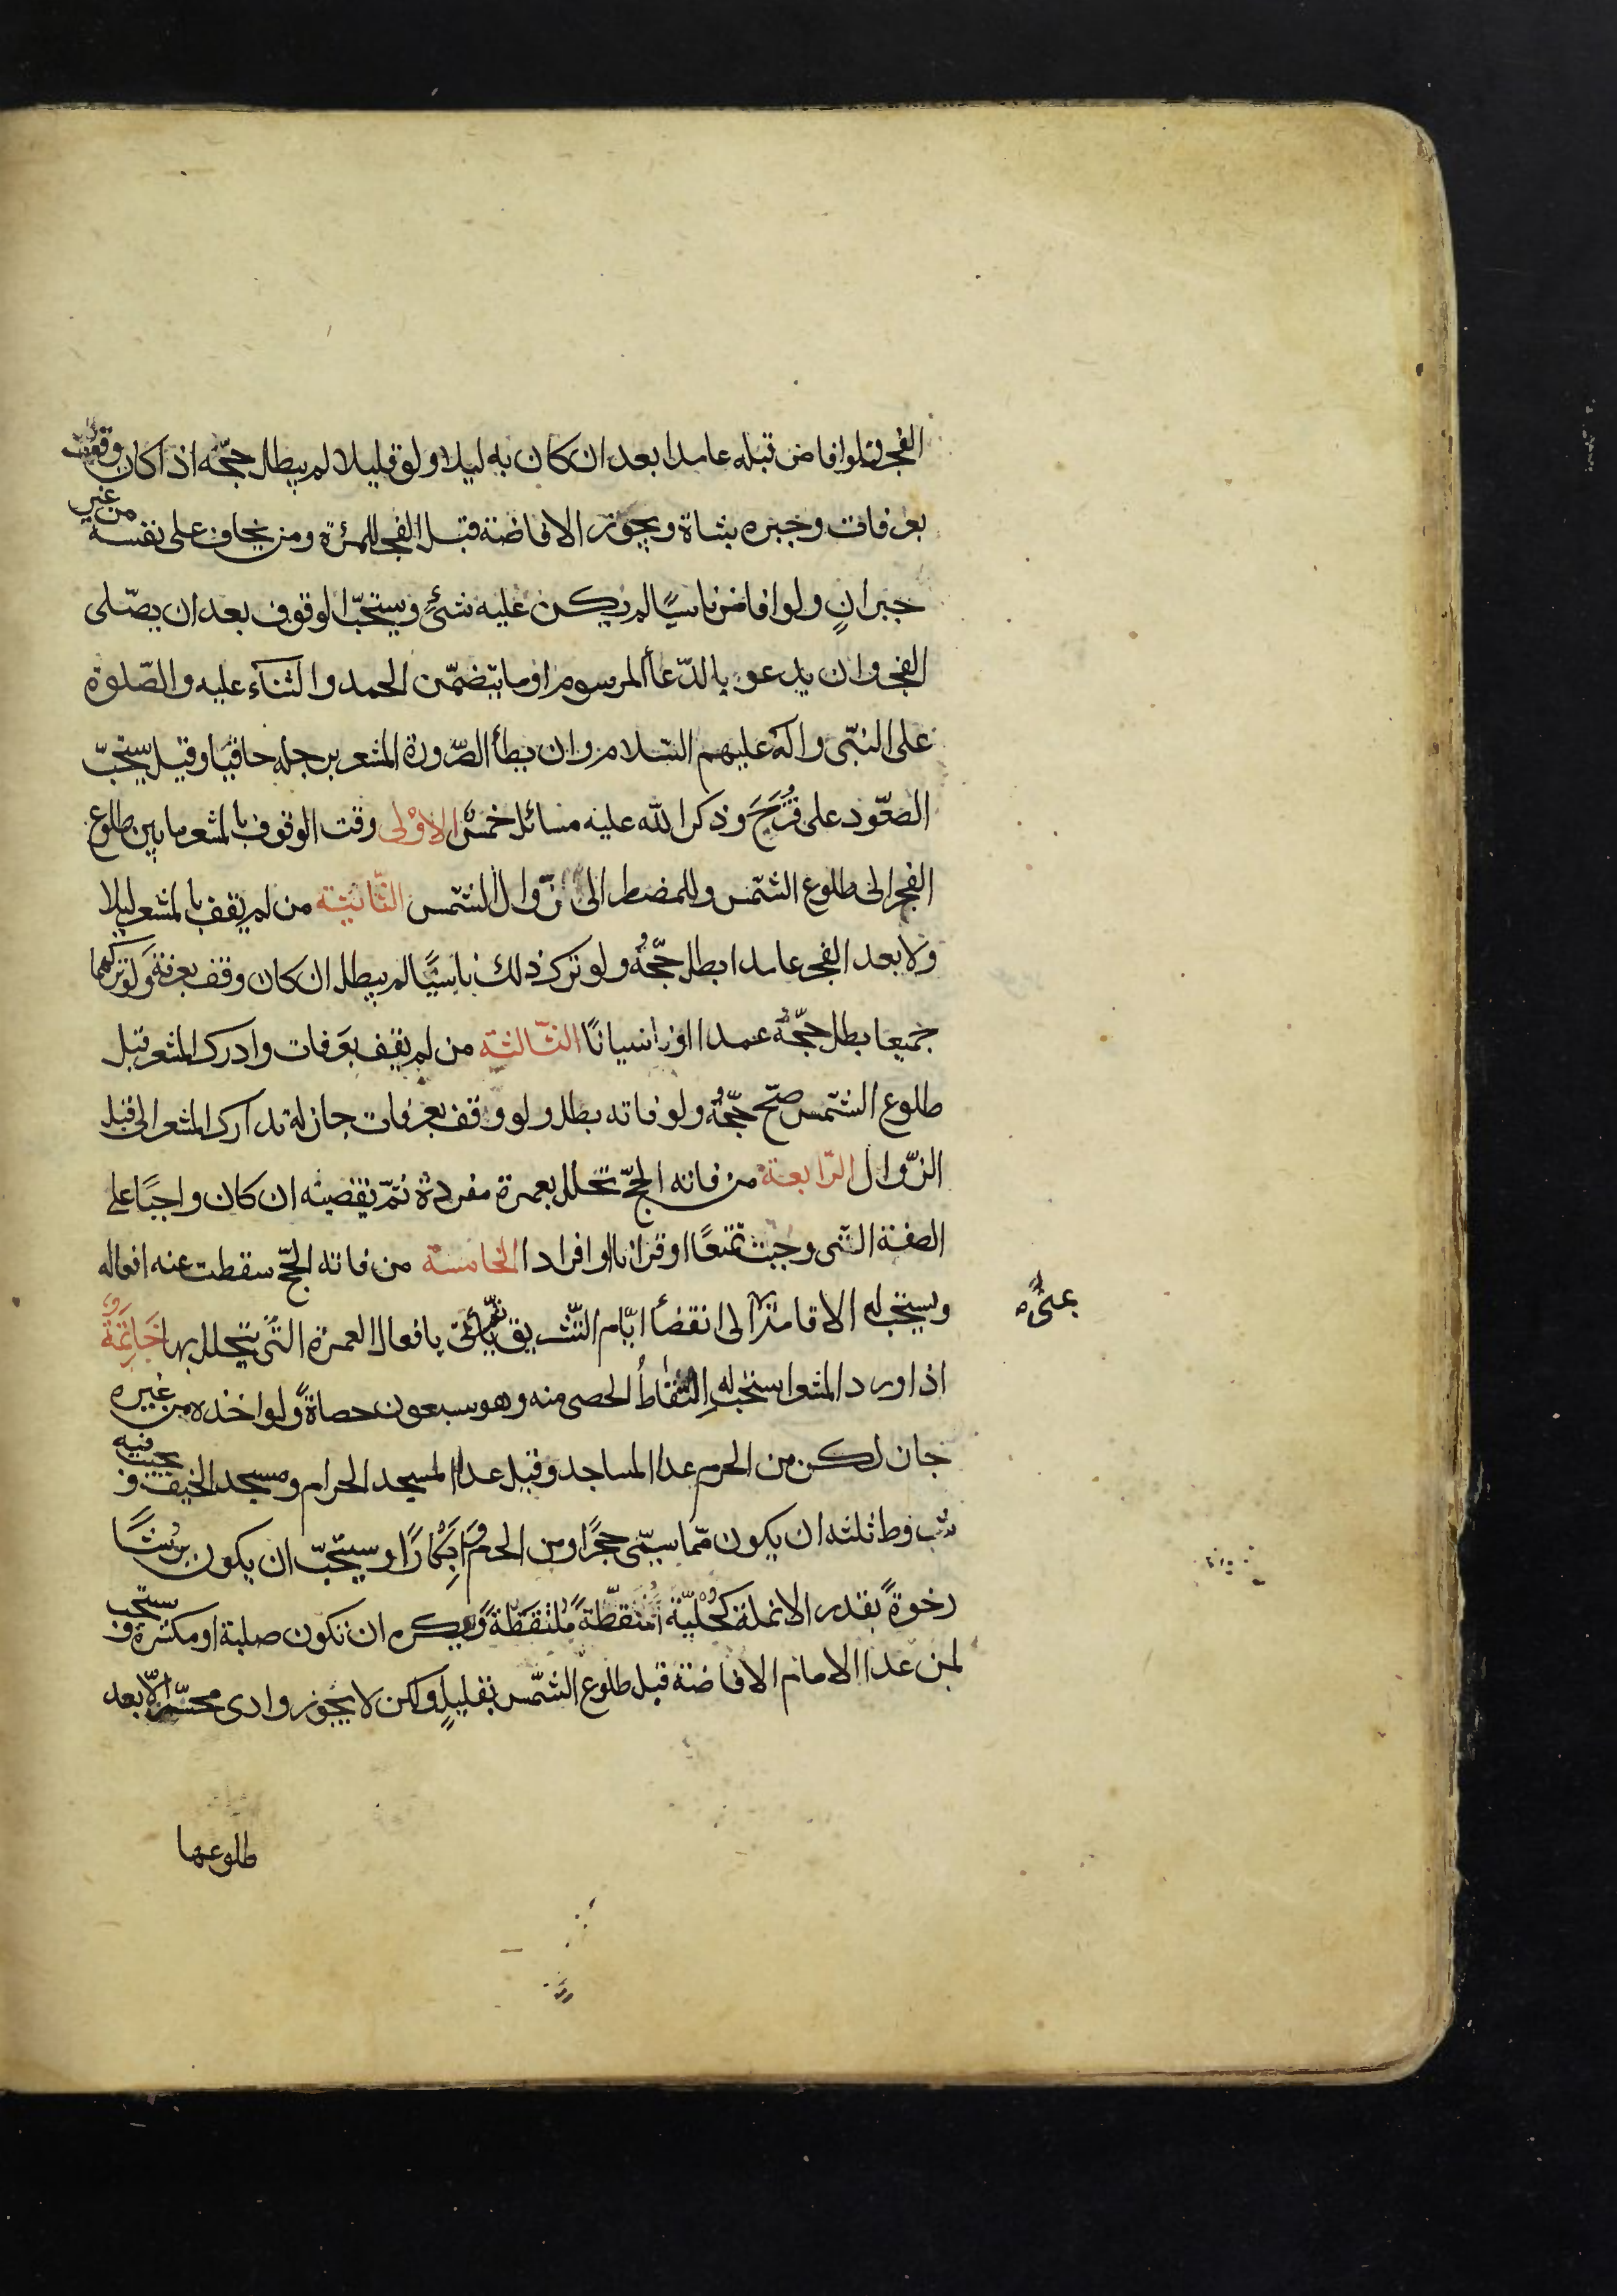 الفجر فلو افاض قبله عامدا بعد ان كان به ليلا ولو قليلا لم يبطل حجّه اذا كان وقف
بعرفات وجبره بشاة ويجوز الافاضة قبل الفجر للمرئة ومن يخاف على نفسه من غير
جبرانٍ ولو افاض ناسيًا لم يكن عليه شئ ويستحبّ الوقوف بعد ان يصّلى
الفجر وان يدعو بالدّعأ المرسوم او ما يتضمّن الحمد والثنآء عليه والصّلوة
على النبّى واله عليهم السّلام وان يطأ الصّرورة المشعر برجله حافيا وقيل يستحبّ
الصعّود على قُزَحَ وذكر الله عليه مسائل خمسٌ الاوْلى وقت الوقوف بالمشعر ما بين طلوع
الفجر الى طلوع الشّمس وللمضطر الى زوال الشّمس الثّانية من لم يقف بالمشعر ليلا
ولا بعد الفجر عامدا بطل حجّهُ ولو ترك ذلك ناسيًا لم يبطل ان كان وقف بعرفة ولو تركهما
جميعا بطل حجّه عمدا او نسيانًا الثّالثة من لم يقف بعرفات وادرك المشعر قبل
طلوع الشّمس صحّ حجّهُ ولو فاته بطل ولو وقف بعرفات جاز له تدارك المشعر الى قبل
الزّوال الرّابعة من فاته الحجّ تحلل بعمرة مفردة ثمّ يقضيه ان كان واجبًا على
الصفة التّى وجبت تمتعًا او قرانا او افرادا الخامسة من فاته الحجّ سقطت عنه افعاله
ويستحب له الاقامة الى انقضأ ايّام التّشريق ثمّ يأتى بافعال العمرة التّى يتحلل بها خَاتِمَةٌ
بمنًى
اذا ورد المشعر استحب له اِلتقاطُ الحصى منه وهو سبعون حصاةً ولو اخذه من غيره
جاز لكن من الحرم عدا المساجد وقيل عدا المسجد الحرام ومسجد الخيف ويجب فيه
شروط ثلثه ان يكون ممّا يسمّى حجرًا ومن الحرم وَ اَبكارًا ويستحبّ ان يكون بُرشًا
رخوةً بقدر الانملة كُحْليّة مُنَقطّةً مُلتَقَطَةً ويكره ان تكون صلبة او مكسرة ويستحب
لمن عدا الامام الافاضة قبل طلوع الشّمس بقليلٍ ولكن لا يجوز وادى محسّر الّا بعد
طلوعها